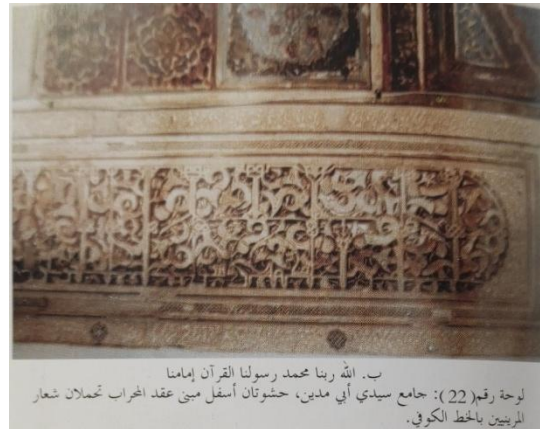 ب. الله ربنا محمد رسولنا القرآن إمامنا
لوحة رقم(22): جامع سيدي أبي مدين، حشوتان أسفل مبنى عقد المحراب تحملان شعار
المرينيين بالخط الكوفي.